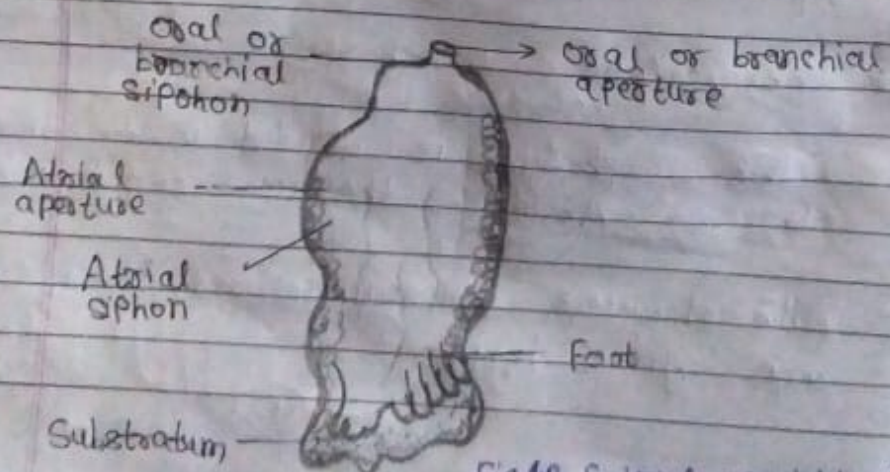 Oral or
branchial
Sipohon
Oral or branchial
aperture
Atrial
aperture
Atrial
siphon
Foot
Substratum